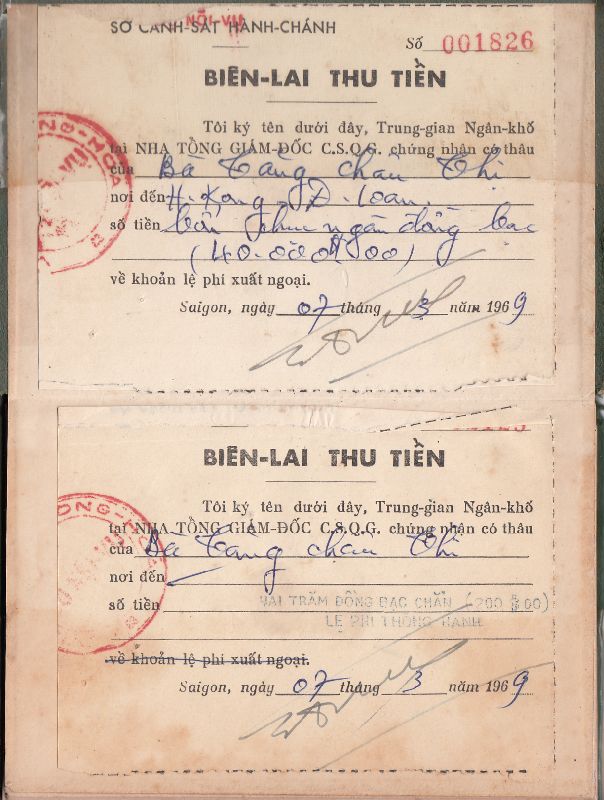 NỘI-VỤ
SỞ CẢNH-SÁT HÀNH-CHÁNH
Số 001826
BIÊN-LAI THU TIỀN
Tôi ký tên dưới đây, Trung-gian Ngân-khố
tại NHA TỔNG GIÁM-ĐỐC C.S.Q.G. chứng nhận có thâu
của Bà Tăng Chân Thị
nơi đến H. Kong Đ. Loan.
số tiền bốn chục ngàn đồng bạc
(40.000$00)
về khoản lệ phí xuất ngoại.
Saigon, ngày 07 tháng 3 năm 1969
BIÊN-LAI THU TIỀN
Tôi ký tên dưới đây, Trung-gian Ngân-khố
tại NHA TỔNG GIÁM-ĐỐC C.S.Q.G. chứng nhận có thâu
của Bà Tăng Chân Thị
nơi đến
số tiền HAI TRĂM ĐỒNG BẠC CHẴN (200$00)
LỆ PHÍ THÔNG HÀNH
về khoản lệ phí xuất ngoại.
Saigon, ngày 07 tháng 3 năm 1969